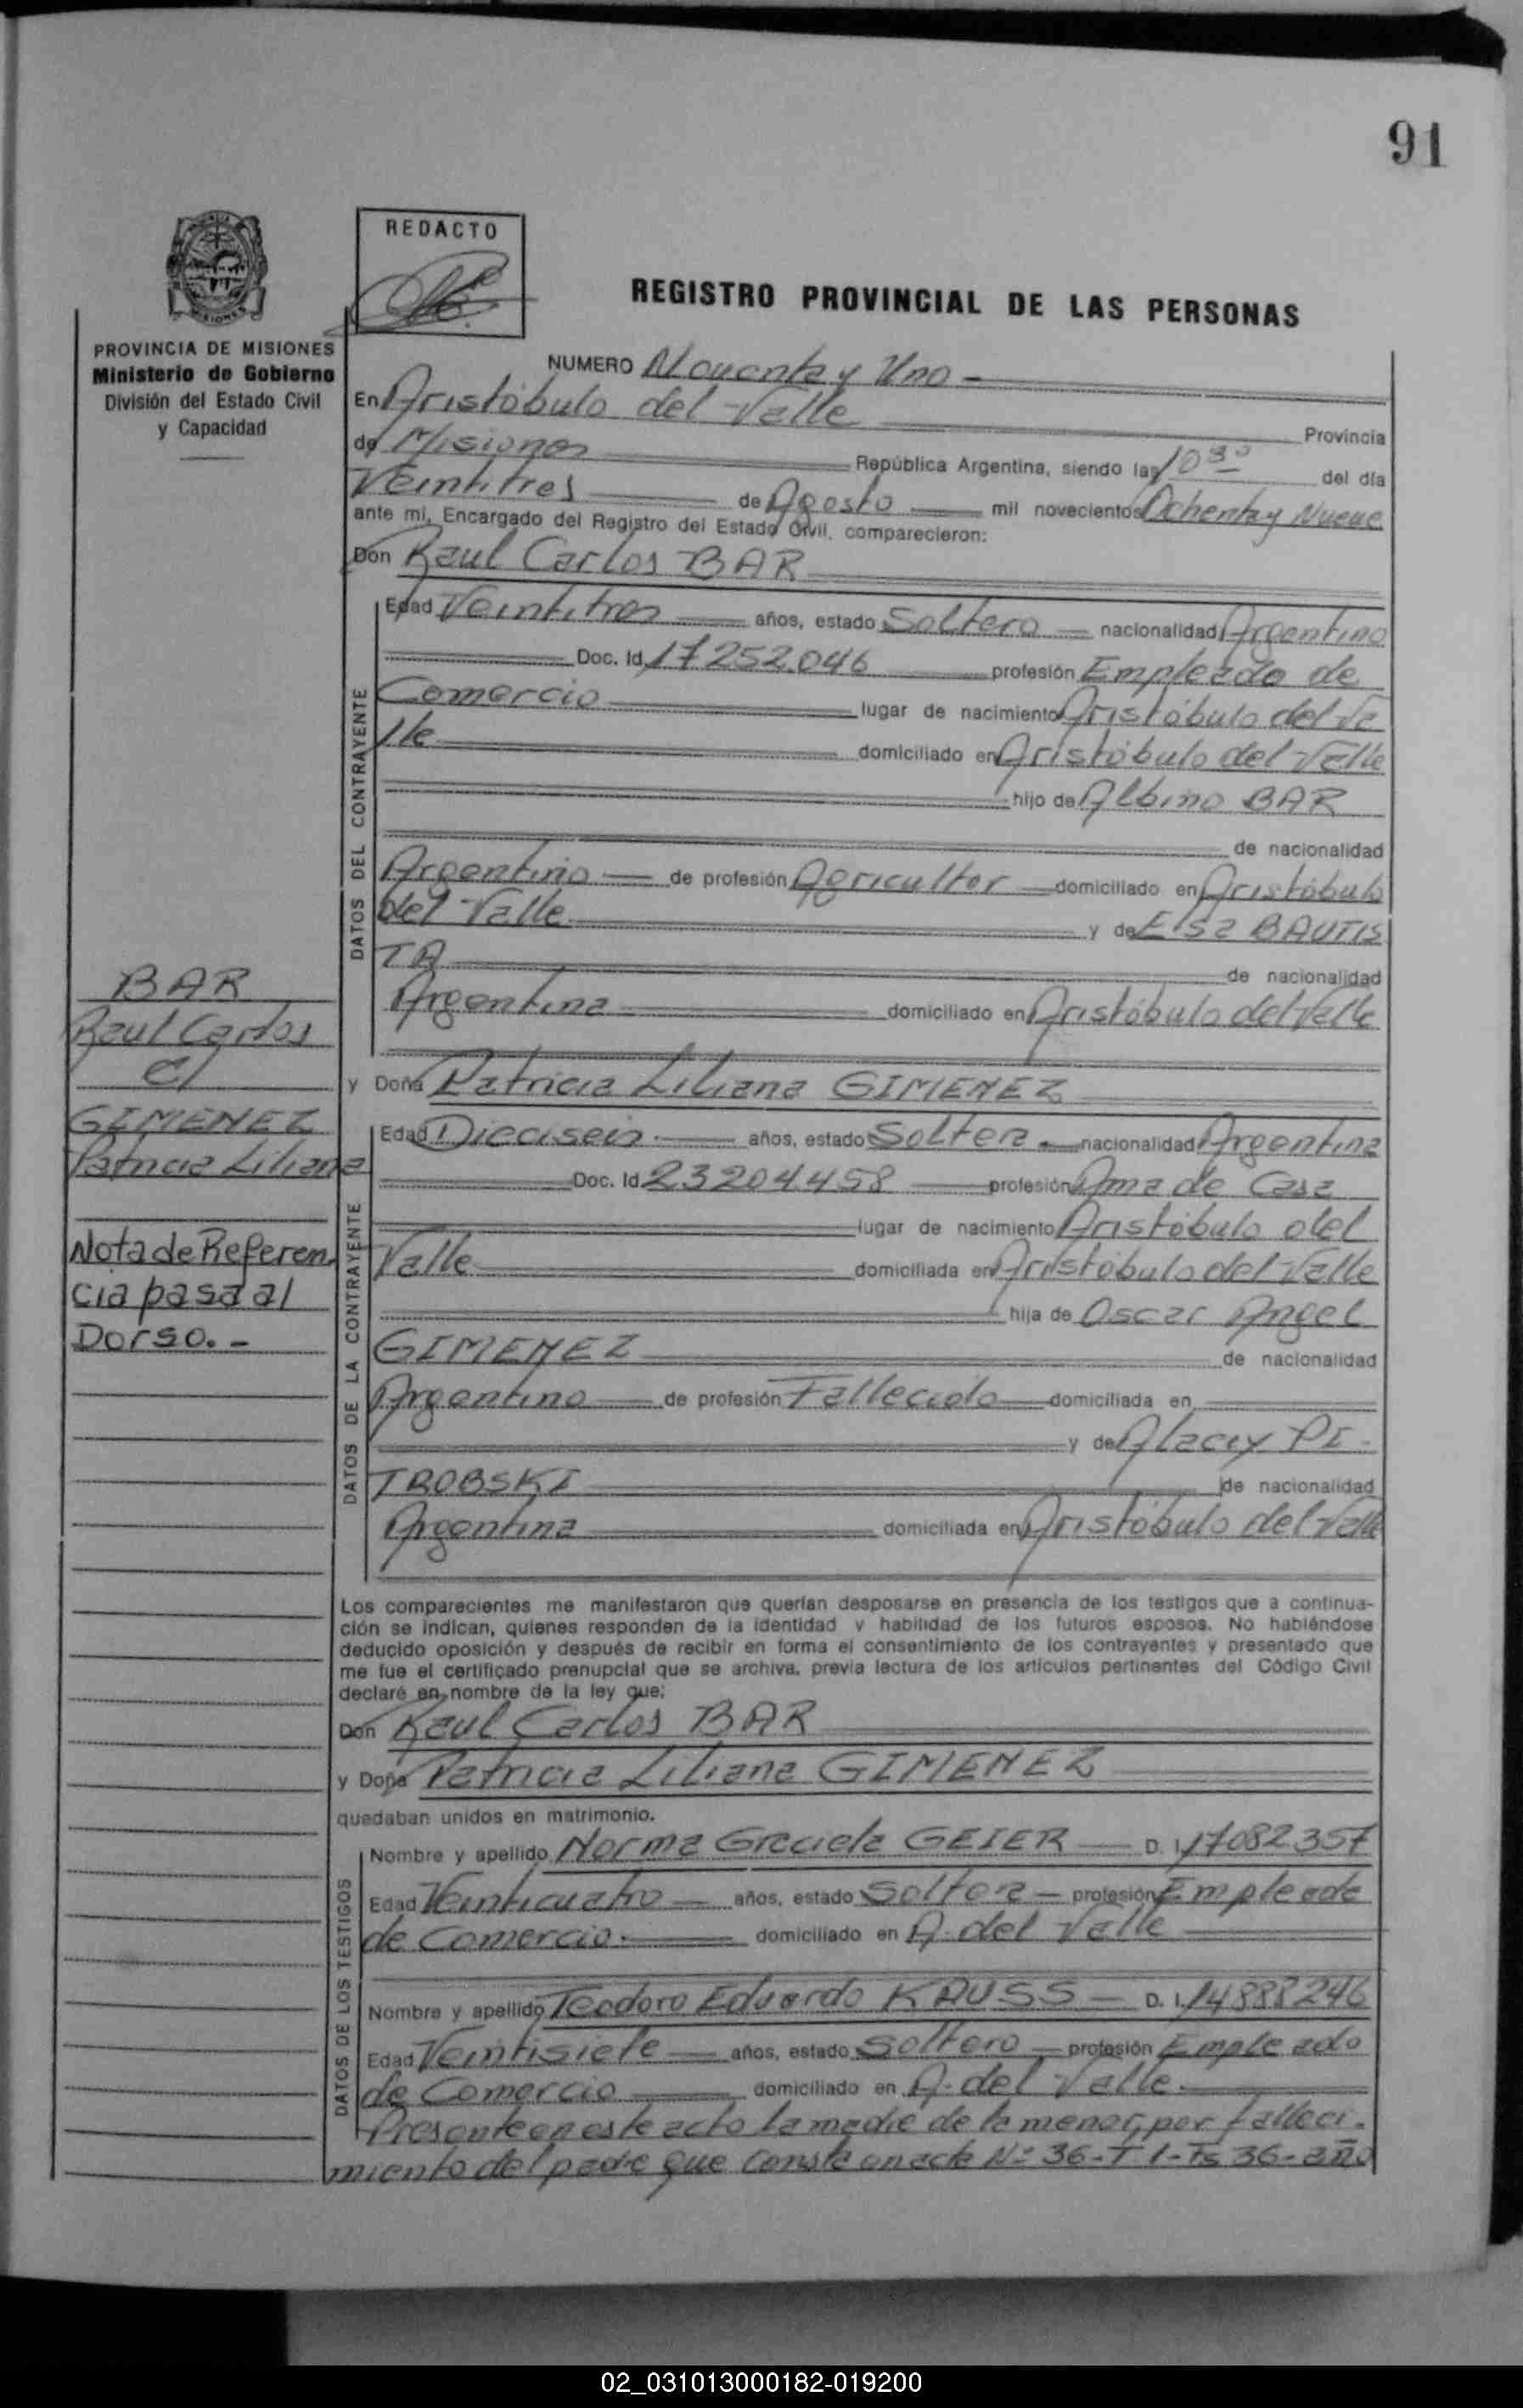 91
REDACTO
REGISTRO PROVINCIAL DE LAS PERSONAS
PROVINCIA DE MISIONES
Ministerio de Gobierno
División del Estado Civil
y Capacidad
NUMERO Noventa y Uno -
En Aristóbulo del Valle Provincia
de Misiones República Argentina, siendo las 10 30 del día
Veintitres de Agosto mil novecientos Ochenta y Nueve
ante mi, Encargado del Registro del Estado Civil, comparecieron:
Don Raul Carlos BAR
DATOS DEL CONTRAYENTE
Edad Veintitres años, estado Soltero nacionalidad Argentina
Doc. Id. 17252.046 profesión Empleado de
Comercio lugar de nacimiento Aristóbulo del Va
lle domiciliado en Aristóbulo del Valle
hijo de Albino BAR
de nacionalidad
Argentino de profesión Agricultor domiciliado en Aristóbulo
del Valle y de Elsa BAUTIS
TA de nacionalidad
Argentina domiciliado en Aristóbulo del Valle
BAR
Raul Carlos
c/
GIMENEZ
Patricia Liliana
Nota de Referen
cia pasa al
Dorso. -
y Doña Patricia Liliana GIMENEZ
DATOS DE LA CONTRAYENTE
Edad Dieciseis años, estado Soltera nacionalidad Argentina
Doc. Id 23204.458 profesión Ama de Casa
lugar de nacimiento Aristóbulo del
Valle domiciliada en Aristóbulo del Valle
hija de Oscar Angel
GIMENEZ de nacionalidad
Argentino de profesión Fallecido domiciliada en
y de Alacy PI-
TROBSKI de nacionalidad
Argentina domiciliada en Aristóbulo del Valle
Los comparecientes me manifestaron que querían desposarse en presencia de los testigos que a continua-
ción se indican, quienes responden de la identidad y habilidad de los futuros esposos. No habiéndose
deducido oposición y después de recibir en forma el consentimiento de los contrayentes y presentado que
me fue el certificado prenupcial que se archiva, previa lectura de los artículos pertinentes del Código Civil
declaré en nombre de la ley que:
Don Raul Carlos BAR
y Doña Patricia Liliana GIMENEZ
quedaban unidos en matrimonio.
DATOS DE LOS TESTIGOS
Nombre y apellido Norma Graciela GEIER D. I. 17082357
Edad Veinticuatro años, estado Soltera profesión Empleada
de Comercio. domiciliado en A. del Valle
Nombre y apellido Teodoro Eduardo KAUSS D. I. 14888246
Edad Veintisiete años, estado Soltero profesión Empleado
de Comercio domiciliado en A. del Valle.
Presente en este acto la madre de la menor, por falleci-
miento del padre que consta en acta Nº 36-T 1-Fs 36-año
02_031013000182-019200